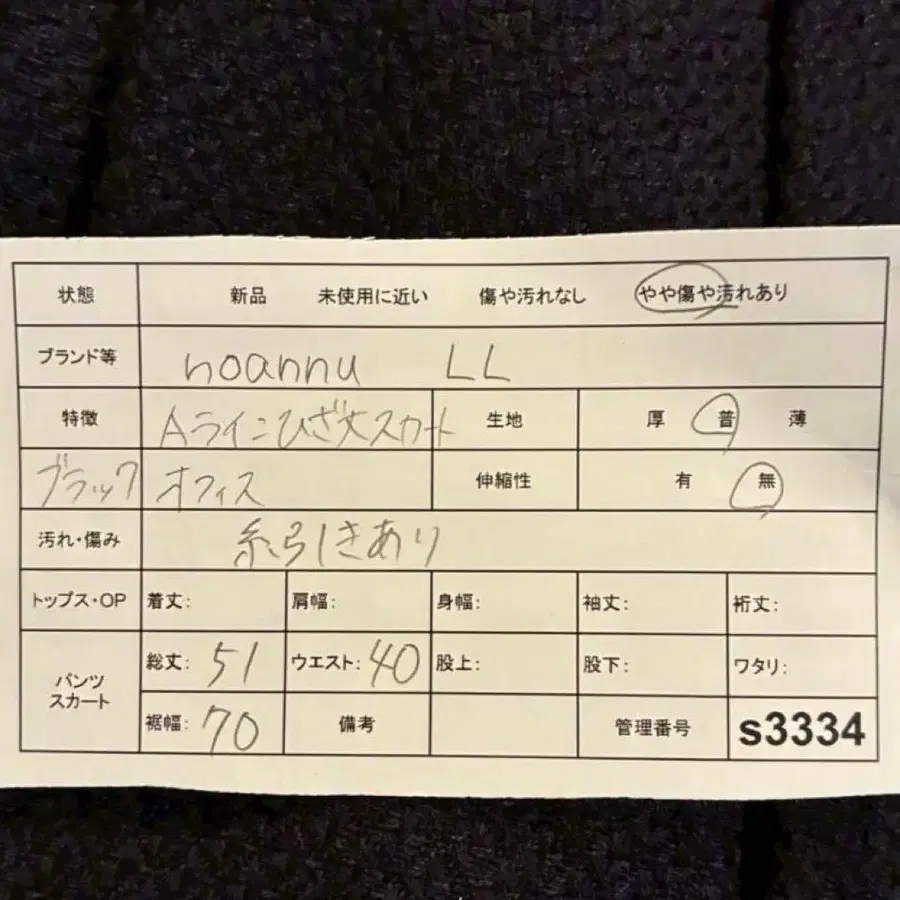 状態 新品 未使用に近い 傷や汚れなし やや傷や汚れあり
ブランド等 noannu LL
特徴 Aラインひざ丈スカート 生地 厚 普 薄
ブラック オフィス 伸縮性 有 無
汚れ・傷み 糸引きあり
トップス・OP 着丈: 肩幅: 身幅: 袖丈: 裄丈:
パンツ スカート 総丈: 51 ウエスト: 40 股上: 股下: ワタリ:
裾幅: 70 備考 管理番号 s3334